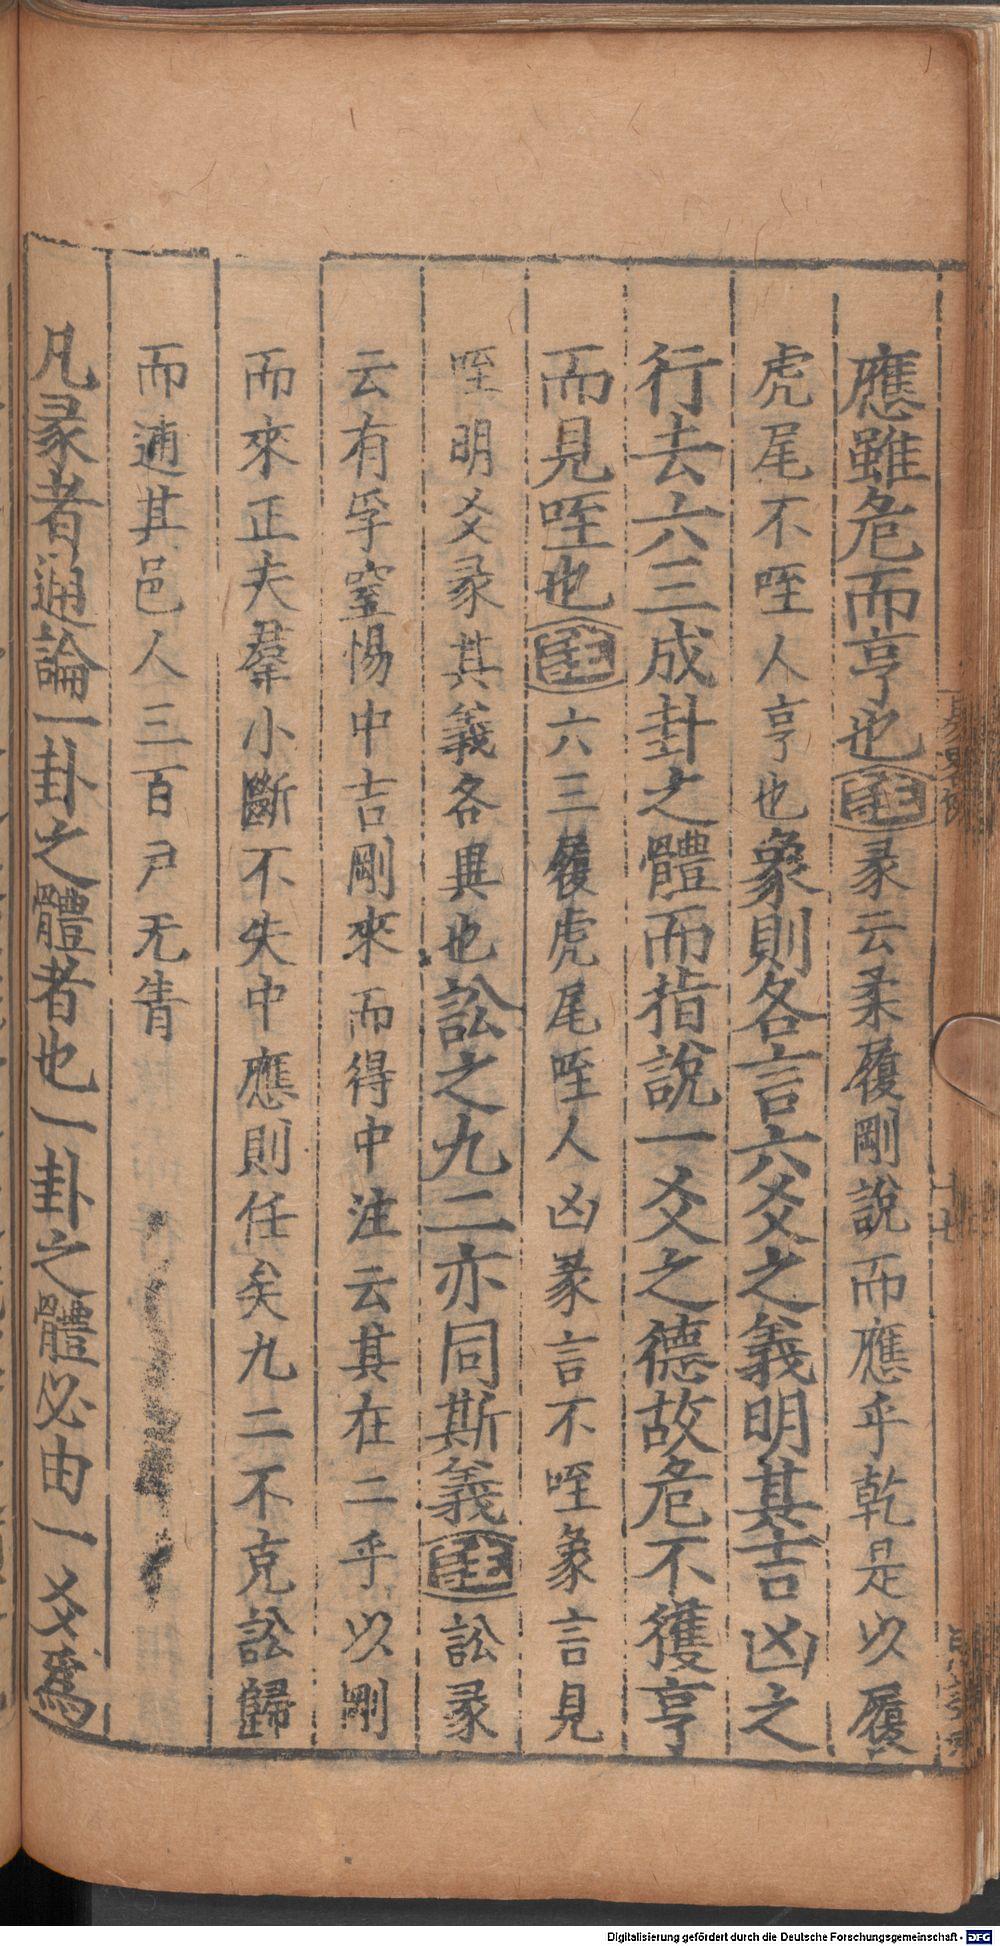 應雖危而亨也註彖云柔履剛說而應乎乾是以履
虎尾不咥人亨也象則各言六爻之義明其吉凶之
行去六三成卦之體而指說一爻之德故危不獲亨
而見咥也註六三履虎尾咥人凶彖言不咥象言見
咥明爻彖其義各異也訟之九二亦同斯義註訟彖
云有孚窒惕中吉剛來而得中注云其在二乎以剛
而來正夫羣小斷不失中應則任矣九二不克訟歸
而逋其邑人三百戶无眚
凡彖者通論一卦之體者也一卦之體必由一爻爲
Digitalisierung gefördert durch die Deutsche Forschungsgemeinschaft - DFG